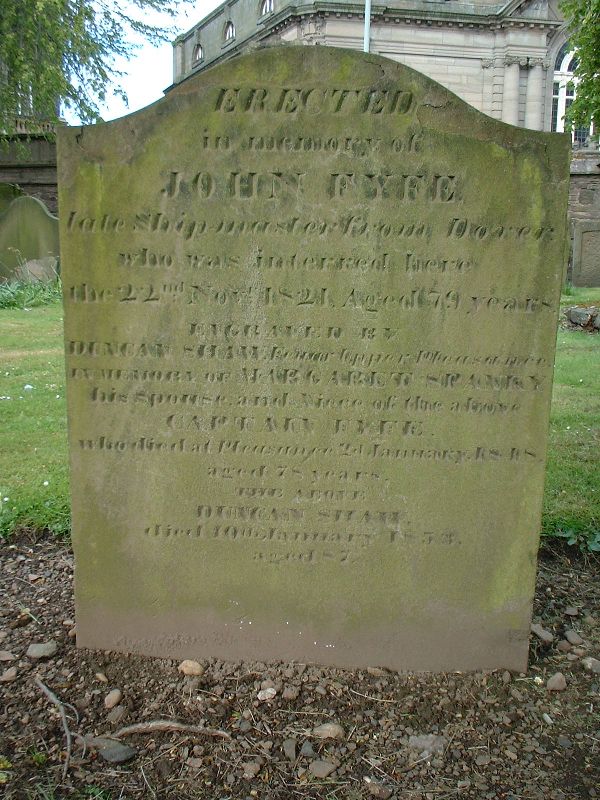 ERECTED
in memory of
JOHN FYFE
late Ship-master from Dover
who was interred here
the 22nd Novr 1821, Aged 79 years
ENGRAVED BY
DUNCAN SHAW, Feuar Upper Pleasance
IN MEMORY OF MARGARET SPANKY
his Spouse, and Niece of the above
CAPTAIN FYFE.
who died at Pleasance 2d January, 1848
aged 78 years.
THE ABOVE
DUNCAN SHAW.
died 10th January 1853.
aged 87.